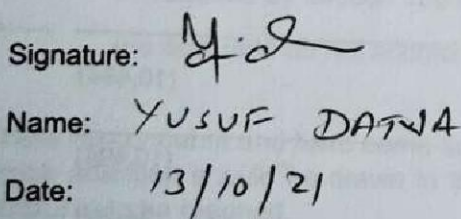 Signature:
Name: YUSUF
Date: 13/10/21